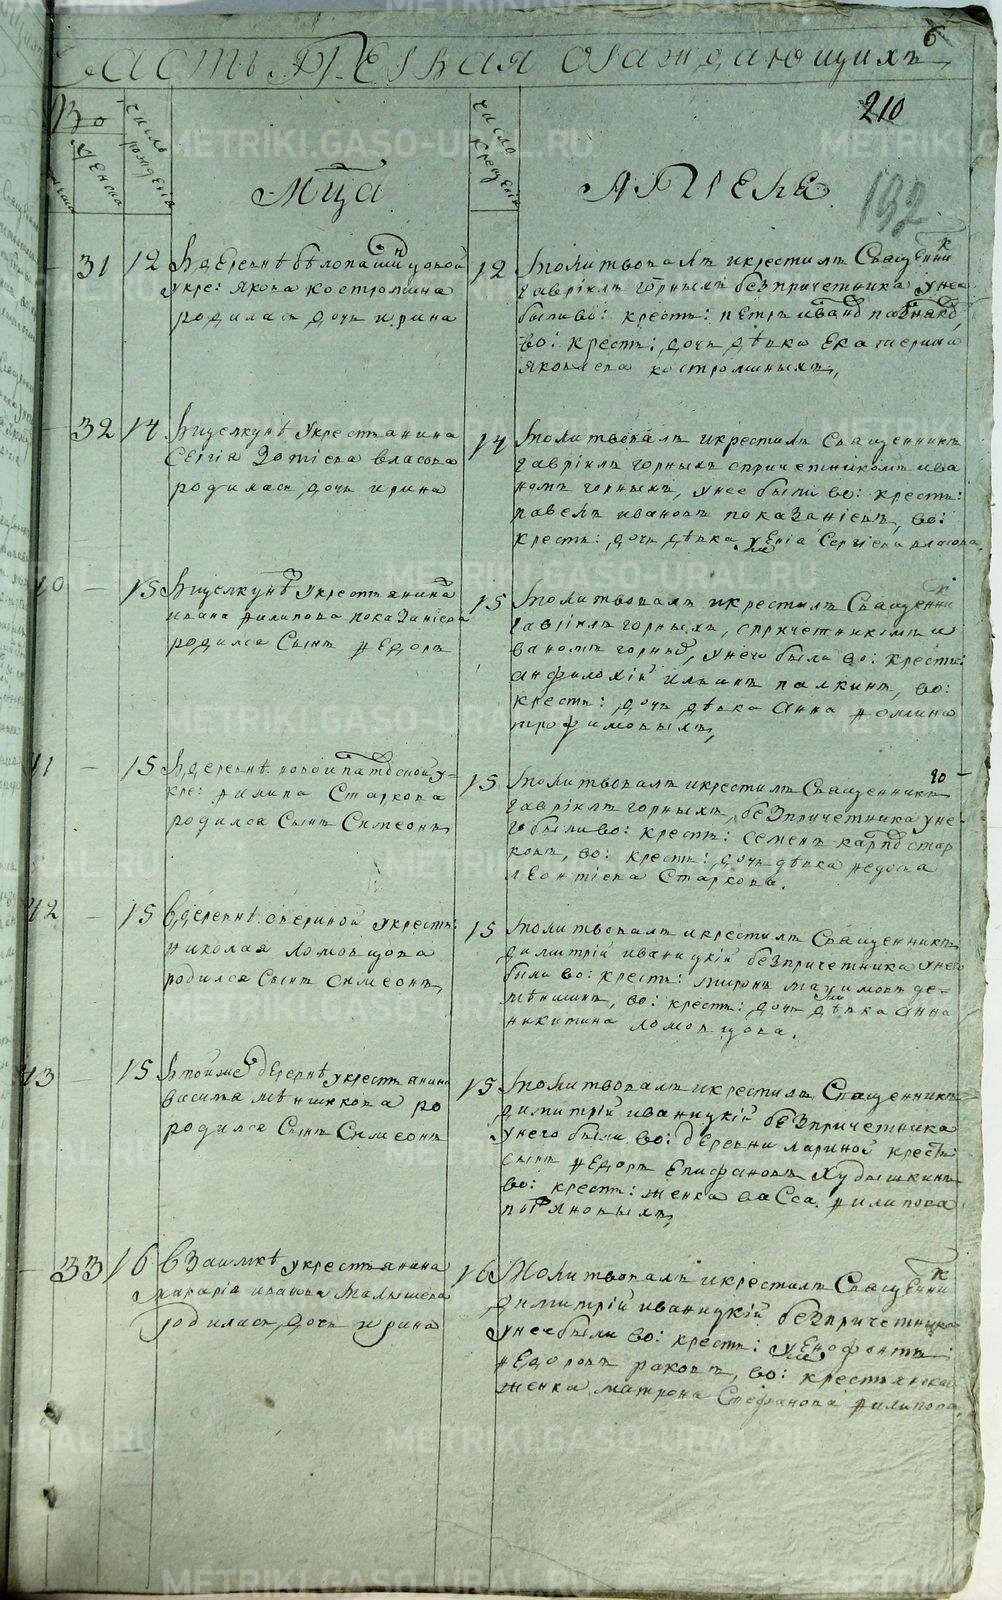 6
Часть Первая о Раждающихся
210
192
число рожденiя
число крещенiя
Мца
Апреле
31 12 Въ деревнѣ Бѣлопашинцовой
укре: Якова Костромина
родилась дочь Ирина
12 молитвовалъ и крестилъ Священникъ
Гаврiилъ Горныхъ безпричетника у нее
были во: крест:
во: крест: дочь дѣвка Екатерина
Яковлева Костроминыхъ,
32 14 В Щелкунѣ у крестьянина
Сергiя Зотiева Власова
родилась дочь Ирина
14 молитвовалъ и крестилъ Священникъ
Гаврiилъ Горныхъ спричетникомъ Ива
номъ Горныхъ, у нее были во: крест:
Павелъ Ивановъ Показанiевъ, во:
крест: дочь дѣвка Сергiева Власова
40 15 В Щелкунѣ у крестьянина
Ивана Филипова Показанiева
родился Сынъ Федоръ
15 молитвовалъ и крестилъ Священникъ
Гаврiилъ Горныхъ, спричетникомъ И
ваномъ Горныхъ, у него были во: крест:
Анфилохiй Ильинъ Палкинъ, во:
крест: дочь дѣвка Анна Фомина
Трофимовыхъ,
41 15 Въ деревнѣ у
кре: Филипа Старкова
родился Сынъ Симеонъ
15 молитвовалъ и крестилъ Священникъ
Гаврiилъ Горныхъ, безпричетника у не
го были во: крест: Семенъ Карповъ Стар
ковъ, во: крест: дочь дѣвка Федосья
Леонтiева Старкова.
42 15 В деревнѣ Авериной у крест:
Николая Ломовцова
родился Сынъ Симеонъ,
15 молитвовалъ и крестилъ Священникъ
Димитрiй Иваницкiй безпричетника у него
были во: крест: Миронъ Максимовъ Де-
мѣншинъ, во: крест: дочь дѣвка Анна
Никитина Ломовцова.
43 15 В тойже деревнѣ у крестьянина
Василья Мѣншикова ро
родился Сынъ Симеонъ
15 молитвовалъ и крестилъ Священникъ
Димитрiй Иваницкiй безпричетника
у него были во: деревни Лариной крест:
сынъ Федоръ Епифановъ Худышкинъ
во: крест: женка Васса Филипова
33 16 В Заимкѣ у крестьянина
Макарiя Иванова Малышева
Родилась дочь Ирина
16 Молитвовалъ и крестилъ Священникъ
Димитрiй Иваницкiй безпричетника
у нее были во: крест:
Федоровъ Раковъ, во: крестьянская
женка Матрена Стефанова Филипова,